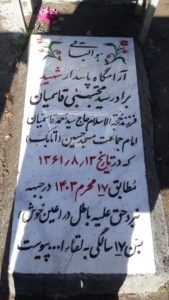 هو الباقی
آرامگاه پاسدار شهید
برادر سید مجتبی قاسمیان
فرزند حجة الاسلام حاج سید احمد قاسمیان
امام جماعت مسجد حسین آباد
که در تاریخ ۱۳۶۱/۸/۱۳
مطابق ۱۷ محرم ۱۴۰۳ در جبهه
نبرد حق علیه باطل در (عین خوش)
بسن ۱۷ سالگی به لقاء ا... پیوست